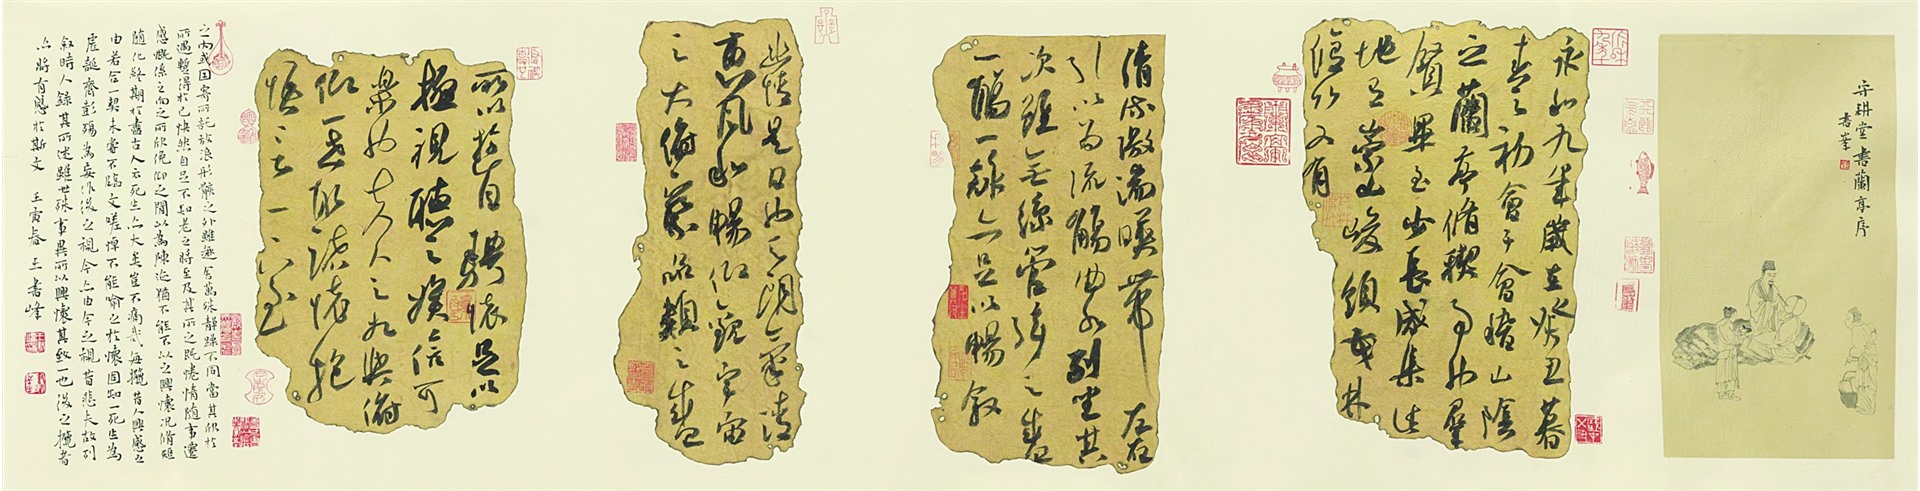 守耕堂書蘭亭序
書峯
永和九年歲在癸丑暮
春之初會于會稽山陰
之蘭亭脩禊事也羣
賢畢至少長咸集此
地有崇山峻領茂林
脩竹又有
清流激湍暎帶左右
引以為流觴曲水列坐其
次雖無絲管弦之盛
一觴一詠亦足以暢叙
幽情是日也天朗氣清
惠風和暢仰觀宇宙
之大俯察品類之盛
所以遊目騁懷足以
極視聽之娛信可
樂也夫人之相與俯
仰一世或取諸懷抱
悟言一室
之內或因寄所託放浪形骸之外雖趣舍萬殊靜躁不同當其欣於
所遇暫得於己快然自足不知老之將至及其所之既惓情隨事遷
感慨係之向之所欣俛仰之閒以為陳迹猶不能不以之興懷況脩短
隨化終期於盡古人云死生亦大矣豈不痛哉每攬昔人興感之
由若合一契未嘗不臨文嗟悼不能喻之於懷固知一死生為
虛誕齊彭殤為妄作後之視今亦由今之視昔悲夫故列
敘時人錄其所述雖世殊事異所以興懷其致一也後之攬者
亦將有感於斯文 壬寅春 王書峰